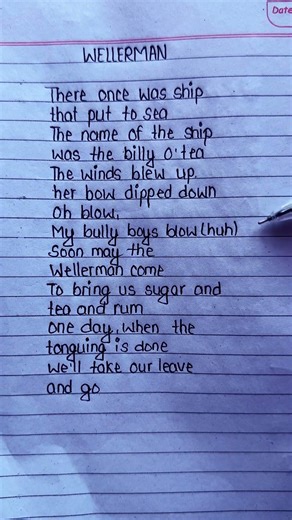 Date
WELLERMAN
There once was ship
that put to sea
The name of the ship
was the billy o'tea
The winds blew up
her bow dipped down
Oh blow,
My bully boys blow (huh)
Soon may the
Wellerman come
To bring us sugar and
tea and rum
one day, when the
tonguing is done
We'll take our leave
and go